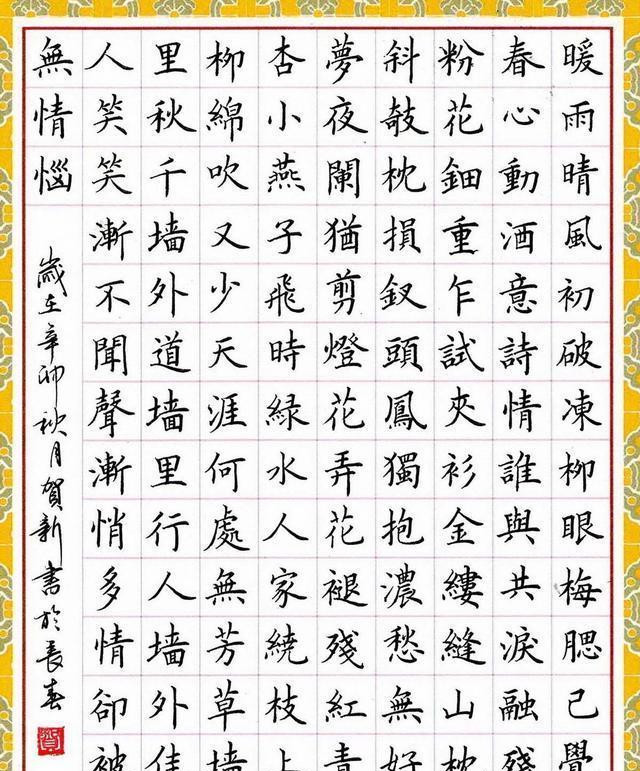 暖雨晴風初破凍柳眼梅腮已覺
春心動酒意詩情誰與共淚融殘
粉花鈿重乍試夾衫金縷縫山枕
斜攲枕損釵頭鳳獨抱濃愁無好
夢夜闌猶剪燈花弄花褪殘紅青
杏小燕子飛時緑水人家繞枝上
柳綿吹又少天涯何處無芳草墙
里秋千墙外道墙里行人墙外佳
人笑笑漸不聞聲漸悄多情卻被
無情惱
歲在辛卯秋月賀新書於長春
賀